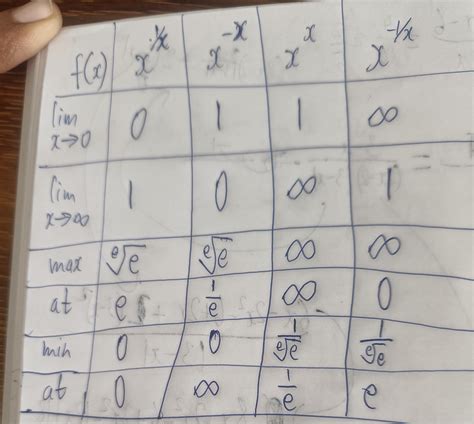 f(x) x^{1/x} x^{-x} x^{x} x^{-1/x}
lim x→0 0 1 1 ∞
lim x→∞ 1 0 ∞ 1
max ᵉ√e ᵉ√e ∞ ∞
at e 1/e ∞ 0
min 0 0 1/ᵉ√e 1/ᵉ√e
at 0 ∞ 1/e e